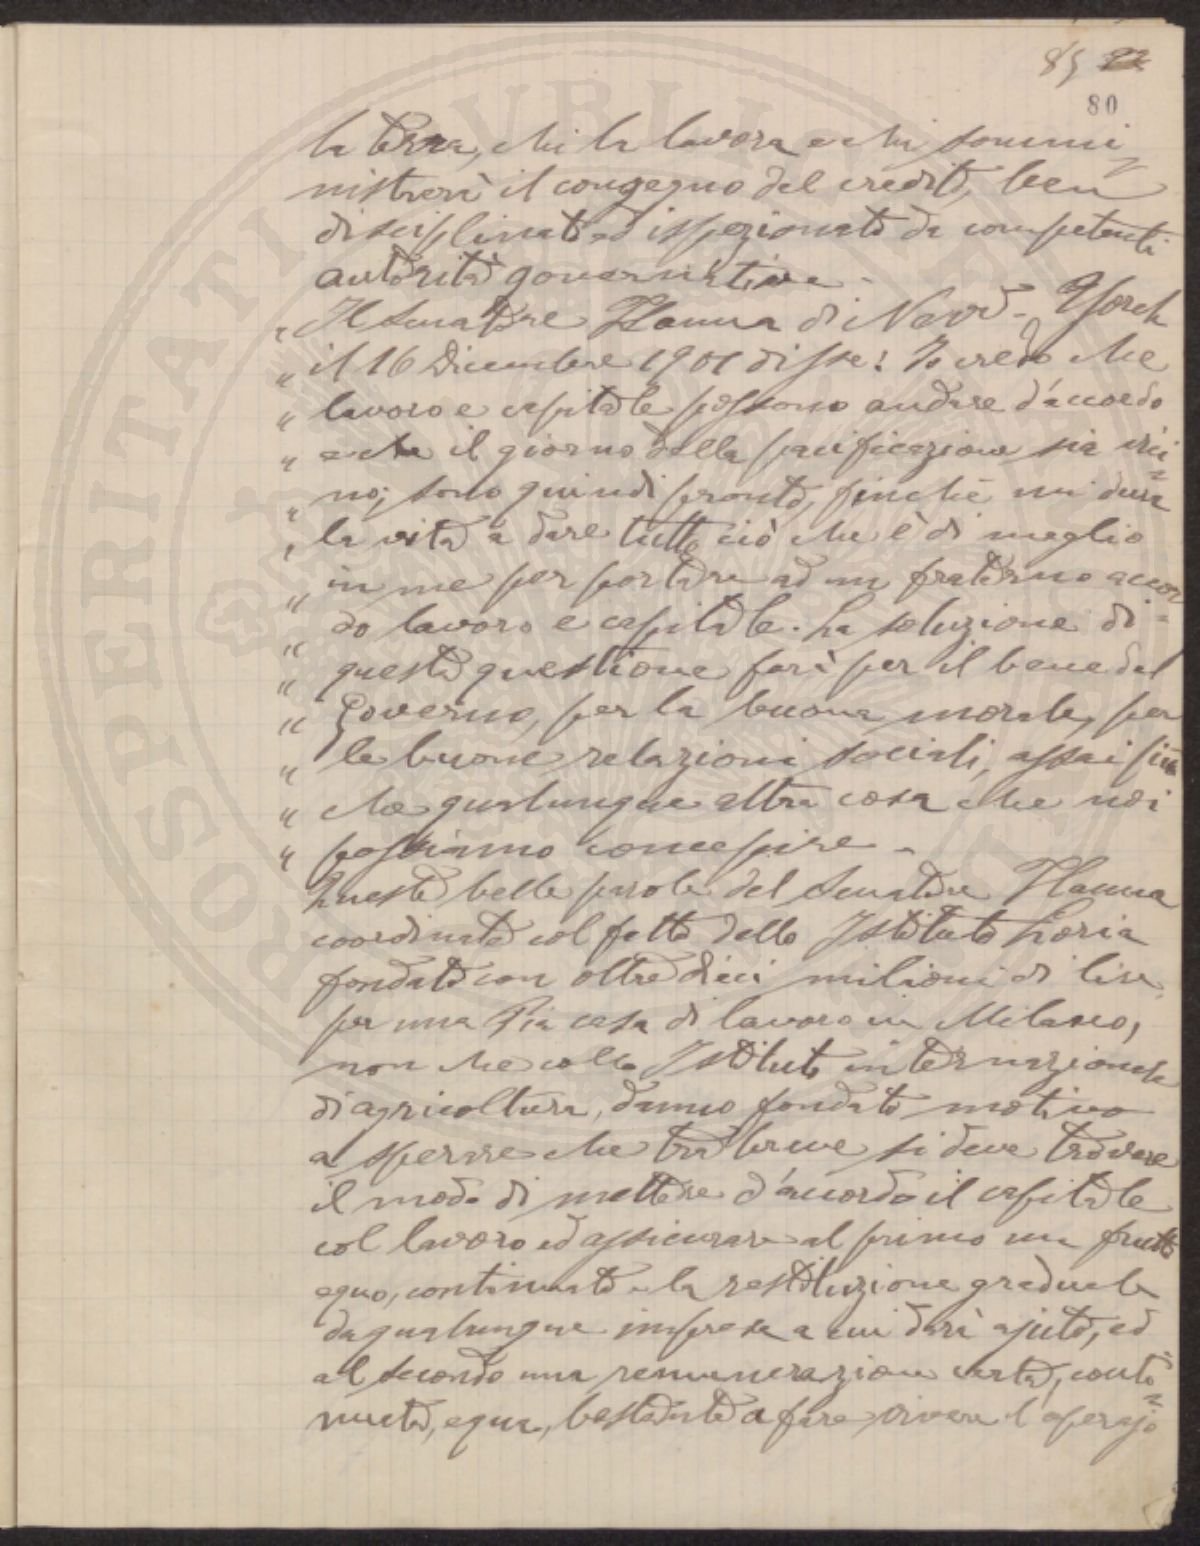 85 82
80
la terra, chi la lavora e chi sommi=
nistrerà il congegno del credito, ben
disciplinato ed ispezionato da competenti
autorità governative -
" Il Senatore Hanna di Nevv- Yorch
" il 16 Dicembre 1901 disse: Io credo che
" lavoro e capitale possono andare d'accordo
" e che il giorno della pacificazione sia vici=
" no; sono quindi pronto, finchè mi dura
" la vita a dare tutto ciò che è di meglio
" in me per portare ad un fraterno accor=
" do lavoro e capitale. La soluzione di
" questa questione farà per il bene del
" Governo, per la buona morale, per
" le buone relazioni sociali, assai più
" che qualunque altra cosa che noi
" possiamo concepire -
Queste belle parole del Senatore Hanna
coordinate col fatto dello Istituto Loria
fondato con oltre dieci milioni di lire
per una Pia casa di lavoro in Milano,
non che collo Istituto internazionale
di agricoltura, danno fondato motivo
a sperare che tra breve si deve trovare
il modo di mettere d'accordo il capitale
col lavoro ed assicurare al primo un frutto
equo, continuato e la restituzione graduale
da qualunque impresa a cui darà ajuto, ed
al secondo una remunerazione certa, conti=
nuata, equa, bastante a fare vivere l'operajo
PROSPERITATI PUBLICAE